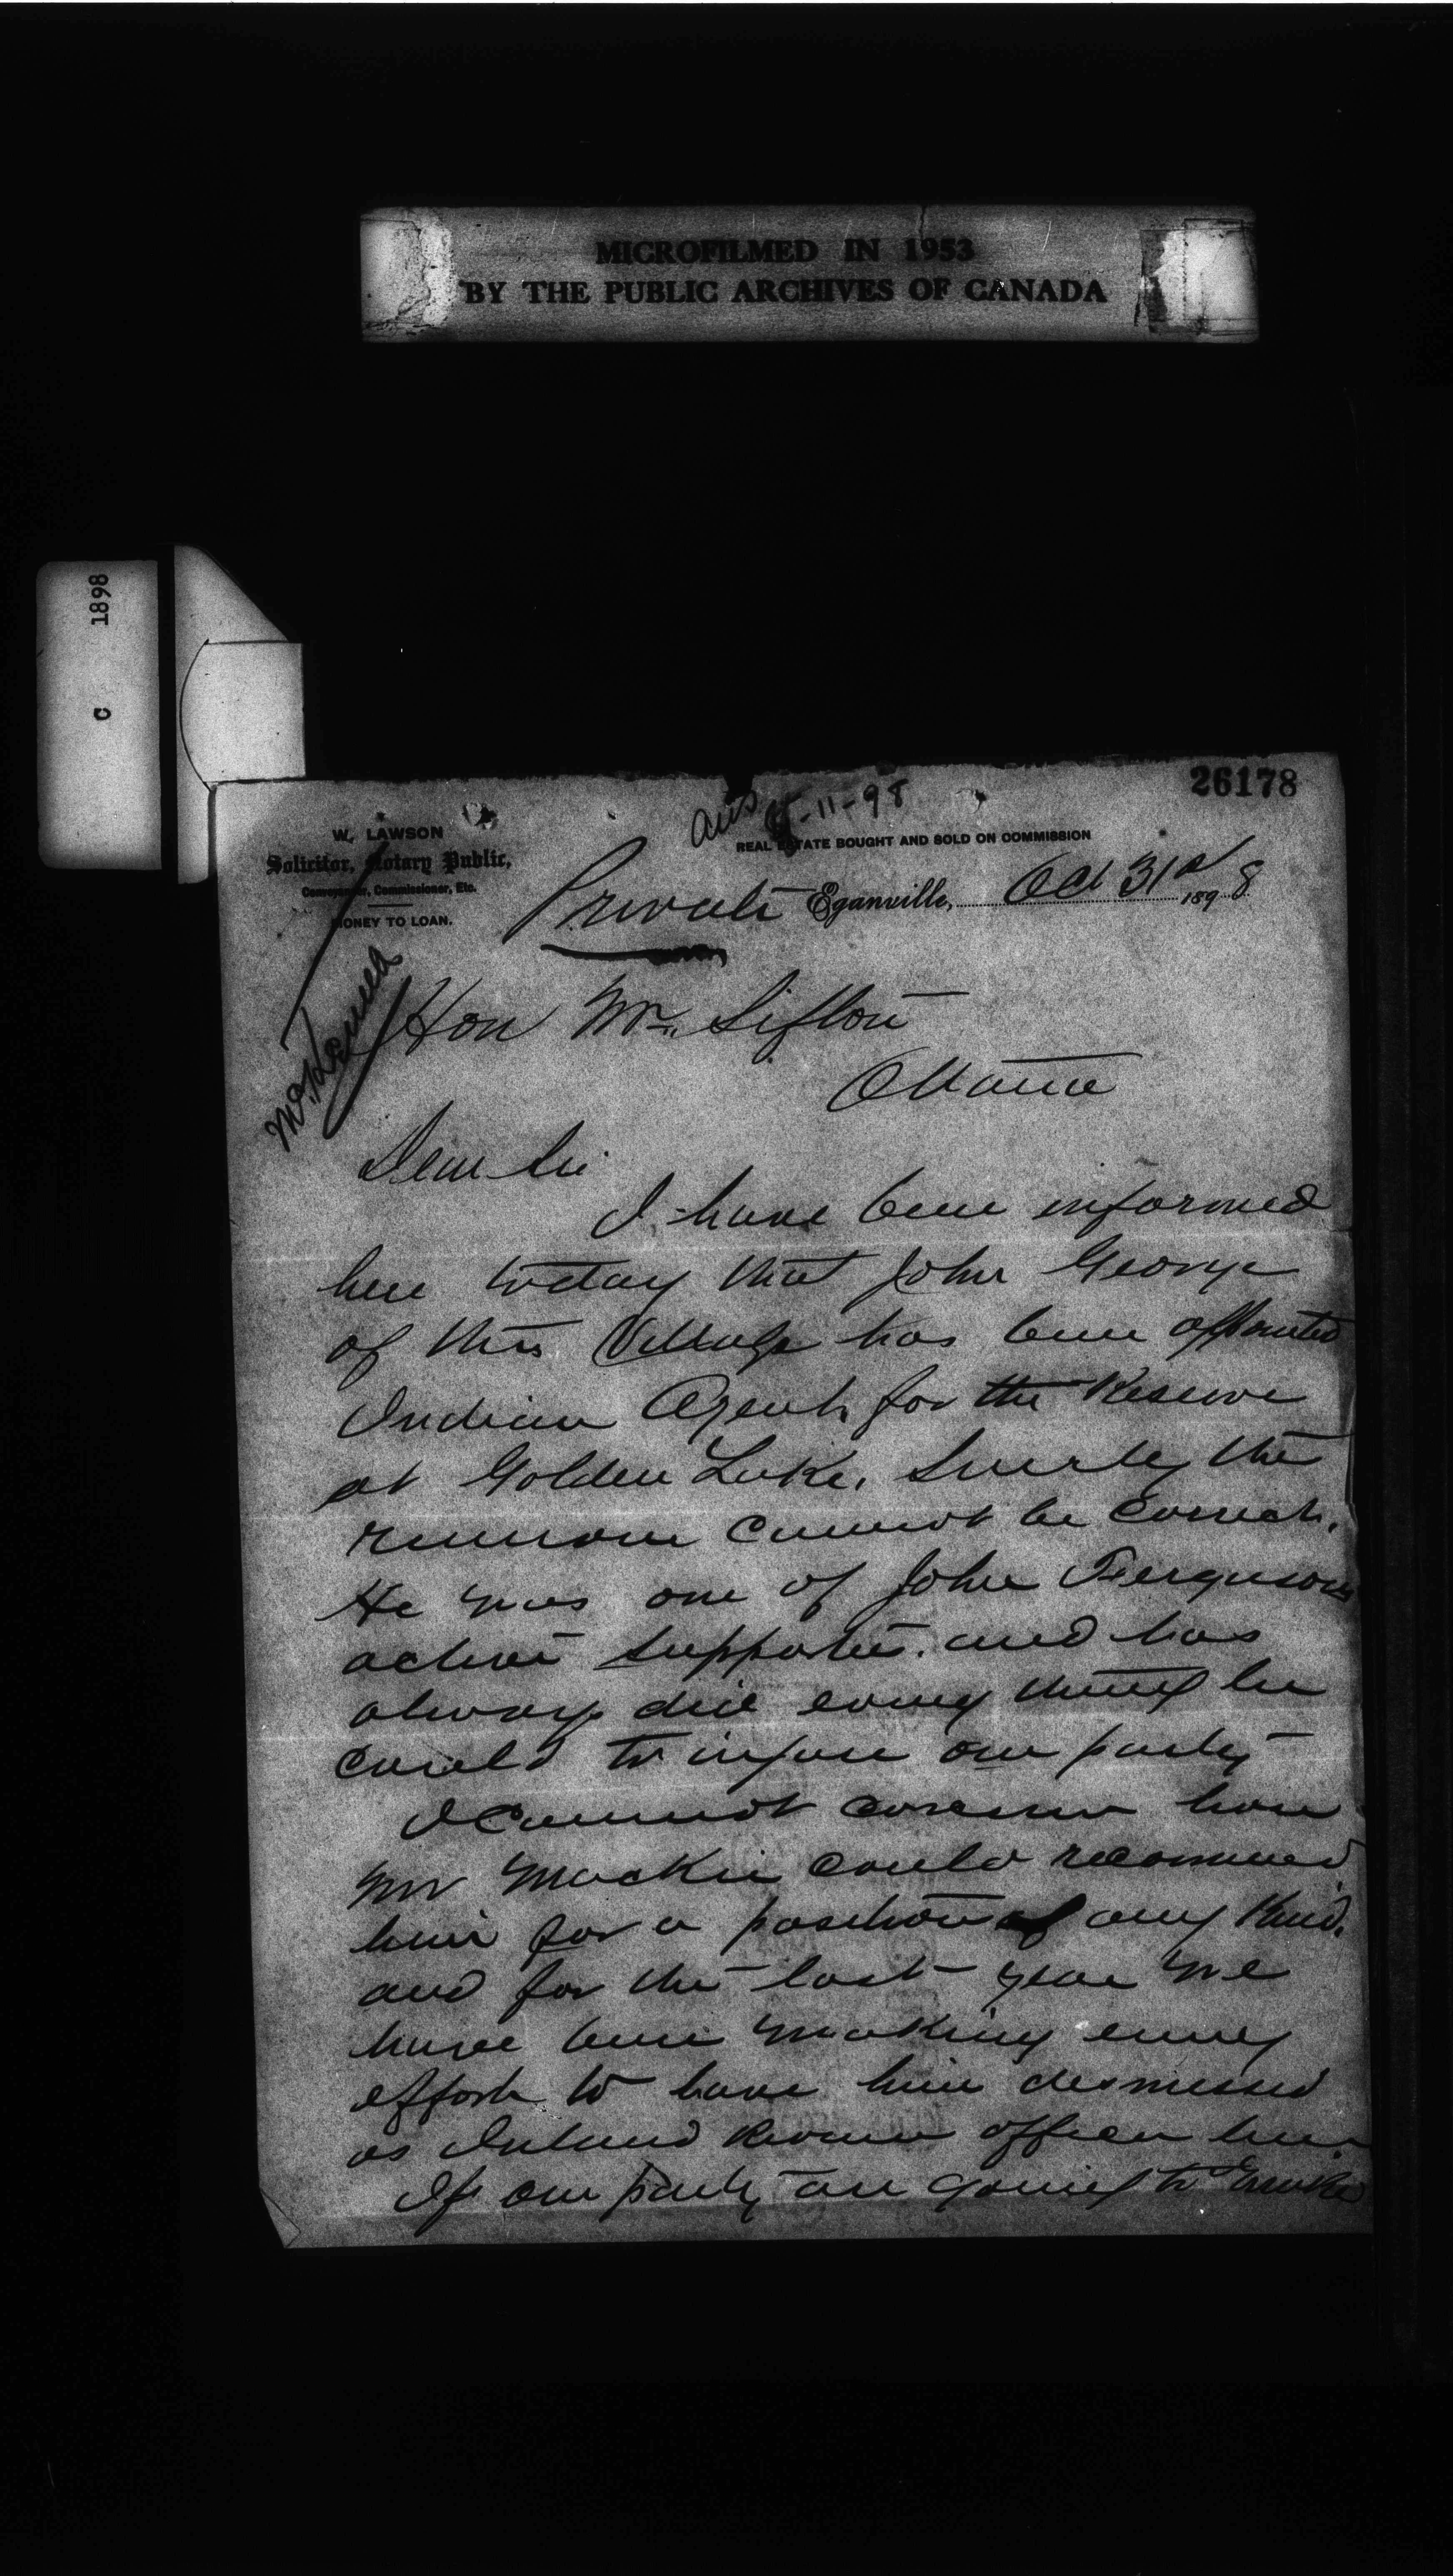 MICROFILMED IN 1953
BY THE PUBLIC ARCHIVES OF CANADA
C 1898
26178
ans 5-11-98
W. LAWSON
Solicitor, Notary Public,
Conveyancer, Commissioner, Etc.
MONEY TO LOAN.
REAL ESTATE BOUGHT AND SOLD ON COMMISSION
Private Eganville, Oct 31st 1898
McKenna
Hon Mr. Sifton
Ottawa
Dear Sir
I have been informed
here today that John George
of this Village has been appointed
Indian Agent for the Reserve
at Golden Lake. Surely the
rumour cannot be correct.
He was one of John Fergusons
active supporters. and has
always did every thing he
could to injure our party
I cannot conceive how
Mr Mackie could recommend
him for a position of any kind.
and for the last year we
have been making every
effort to have him dismissed
as Inland Revenue officer here.
If our party are going to make